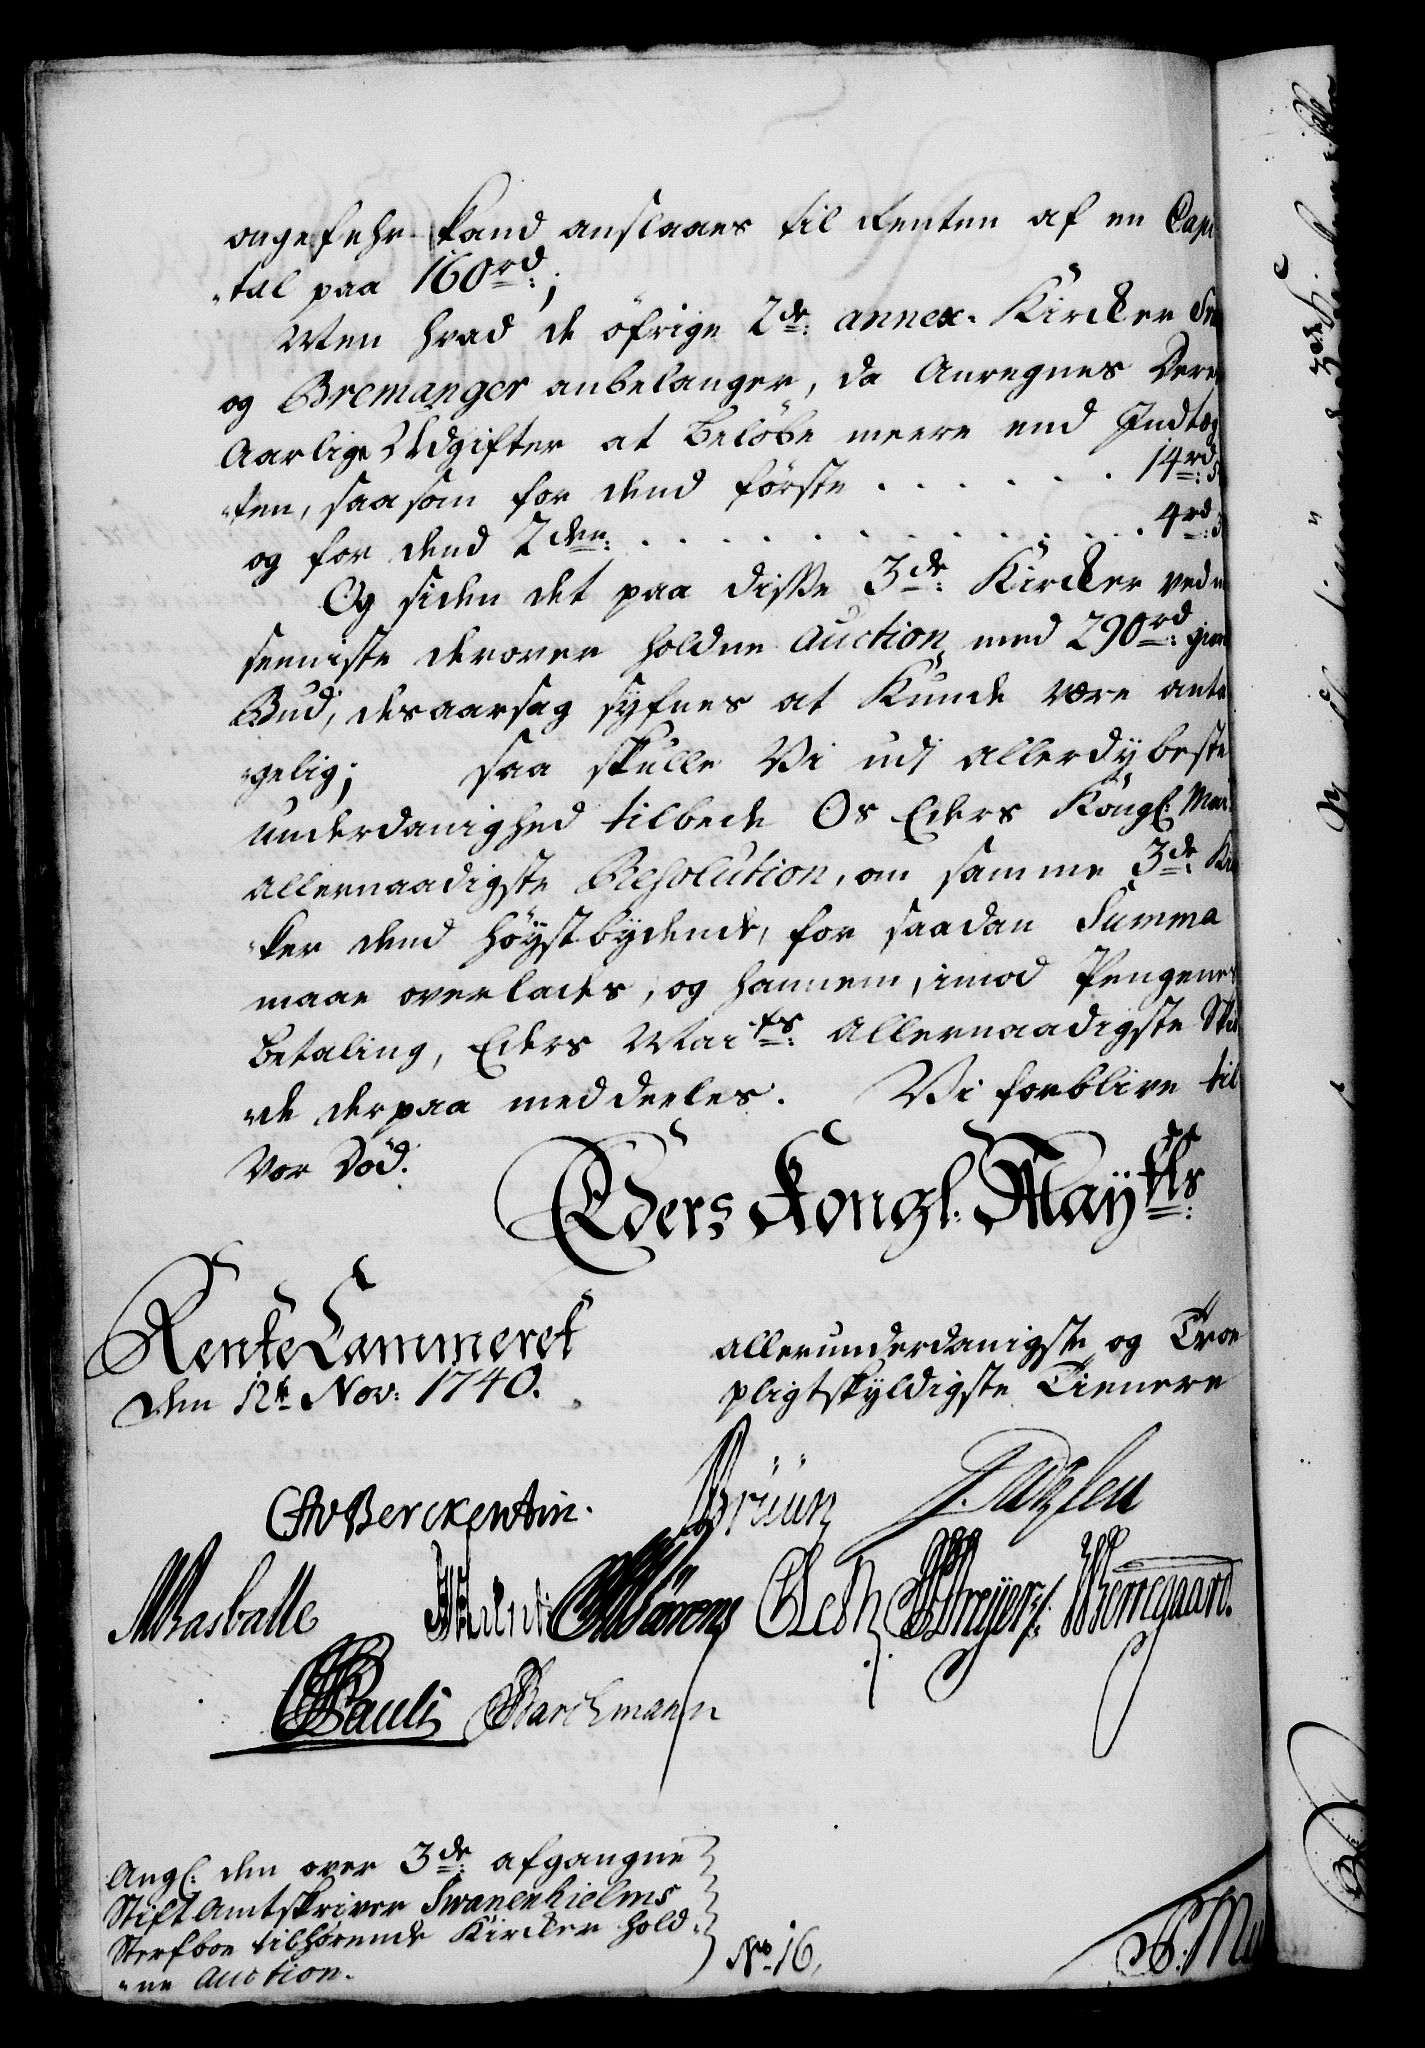 ongefehr kand anslaaes til Renten af en Capi
"tal paa 160 rd:;
Men hvad de öfrige 2de: annex-Kircker
og Bremanger anbelanger, da Anregnes Deres
Aarlige Udgifter at beløbe meere end Indtæg
"ten, saasom for dend förste . . . . . . 14 rd:
og for dend 2den: . . . . . . . . . 4 rd:
Og siden det paa disse 3de: Kircker ved
seeniste derover holdne Auction, med 290 rd: giort
Bud, desaarsag synes at kunde være anta
"gelig; saa skulle Vi udj allerdybeste
underdanighed tilbede Os Eders Kongl: Mai
allernaadigste Resolution, om samme 3de: Kir
"ker dend høystbydende, for saadan Summa
maae overlades, og hannem, imod Pengenes
betaling, Eders Maits: Allernaadigste Skiö
"de derpaa meddeeles. Vi forblive til
Vor Död.
Eders Kongl: Mayttls:
RenteCammeret
den 12te Nov: 1740.
allerunderdanigste og Troe
pligtskyldigste Tienere
CAvBerckentin.
Brüün
Rasballe
Bieregaard.
Pauli
Barchmann
Angl: den over 3de: afgangne
StiftAmtskriver Svanenhielms
Sterfboe tilhörende Kircker hold
"ne Auction.
No: 16.